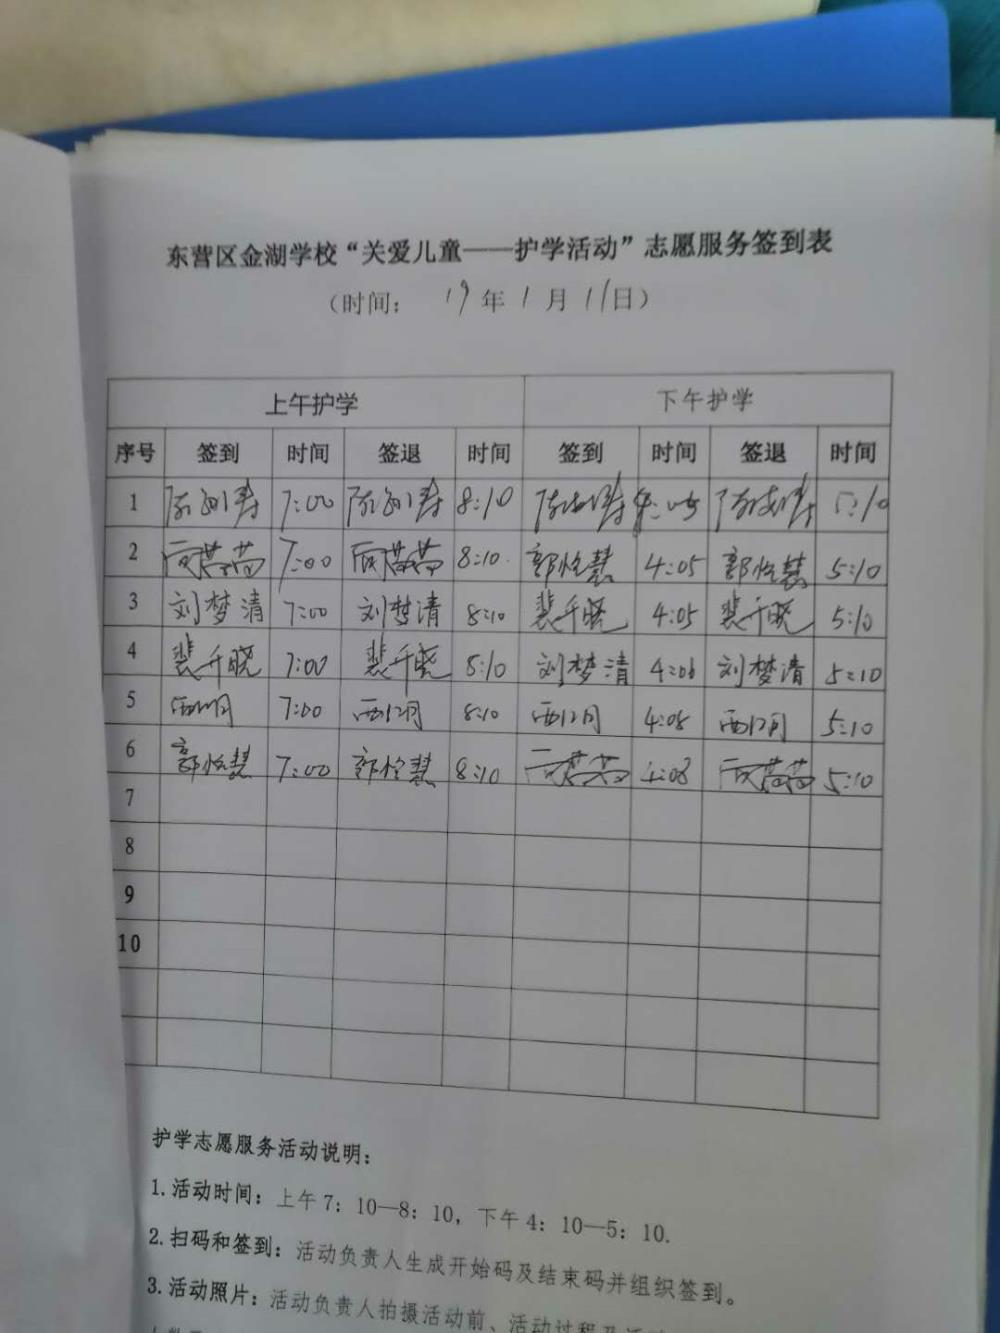 东营区金湖学校“关爱儿童——护学活动”志愿服务签到表
（时间： 19年1月11日）
上午护学 下午护学
序号 签到 时间 签退 时间 签到 时间 签退 时间
1 7:00 8:10 4:05 5:10
2 7:00 8:10 郭悦慧 4:05 郭悦慧 5:10
3 刘梦清 7:00 刘梦清 8:10 裴千晓 4:05 裴千晓 5:10
4 裴千晓 7:00 裴千晓 8:10 刘梦清 4:06 刘梦清 5:10
5 7:00 8:10 4:08 5:10
6 郭悦慧 7:00 郭悦慧 8:10 4:08 5:10
7
8
9
10
护学志愿服务活动说明：
1.活动时间：上午7：10—8：10，下午4：10—5：10.
2.扫码和签到：活动负责人生成开始码及结束码并组织签到。
3.活动照片：活动负责人拍摄活动前、活动过程及活